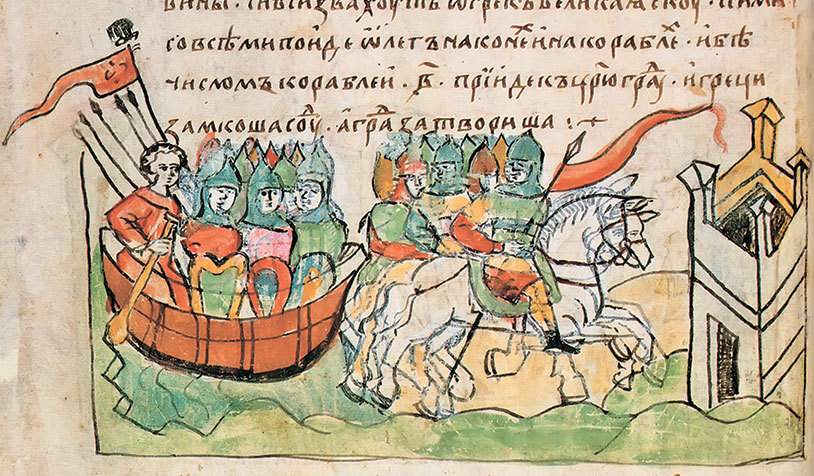 вины · си вси звахоуть ѿ грекъ великаꙗ скоу · сими
со всѣми поиде ѡлегъ на конеⷯ и на кораблеⷯ · и бѣ
числомъ кораблей · в҃ · прїиде къ цр҃ю граⷣу · и греци
замкоша соуⷣ · а граⷣ затвориша :+